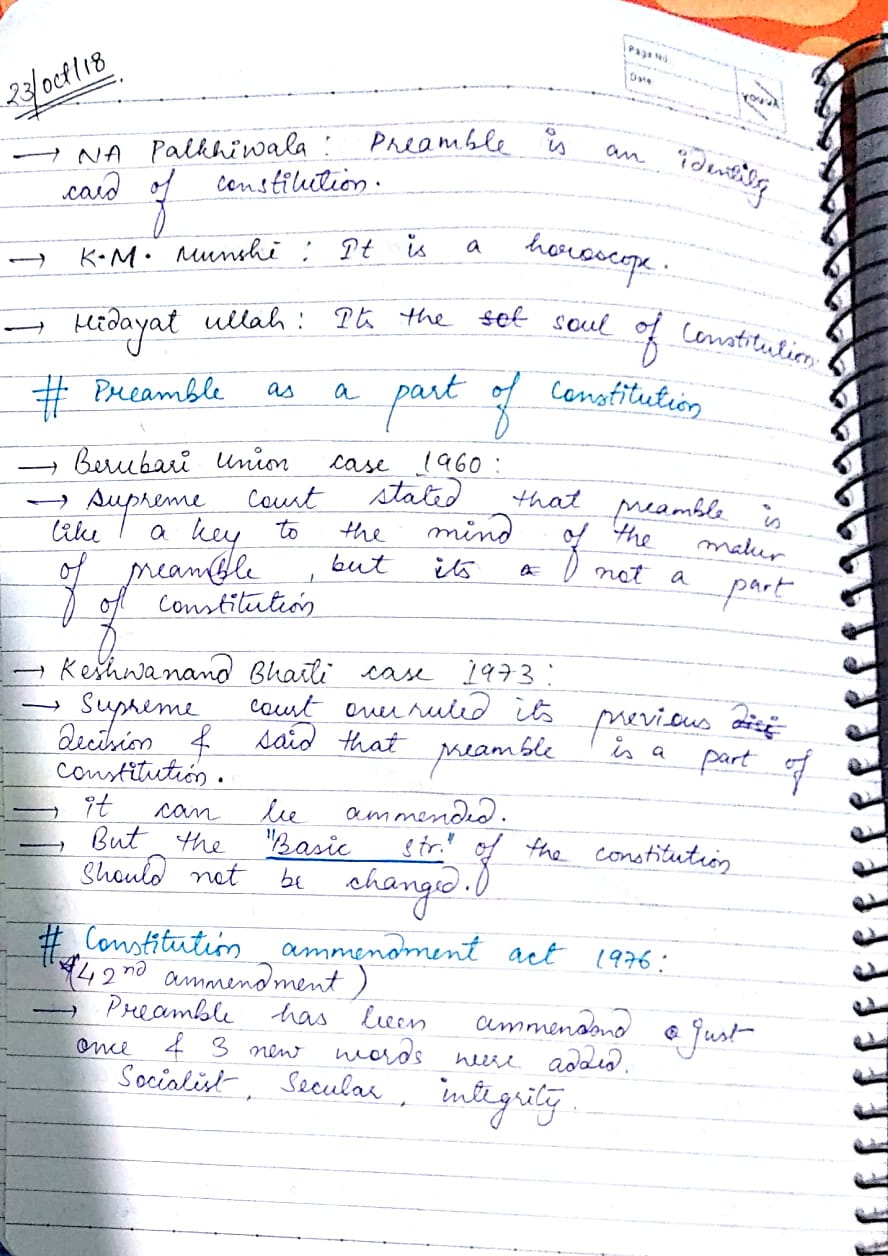 23/oct/18
Page No.
Date
YOUVA
→ NA Palkhiwala : Preamble is an identity
card of constitution.
→ K.M. Munshi : It is a horoscope.
→ Hidayat ullah : Its the sol soul of Constitution
# Preamble as a part of Constitution
→ Berubari Union case 1960 :
→ Supreme Court stated that preamble is
like a key to the mind of the maker
of preamble, but its a not a part
of constitution
→ Keshwanand Bharti case 1973 :
→ Supreme court overruled its previous
decision & said that preamble is a part of
constitution.
→ it can be ammended.
→ But the "Basic str." of the constitution
should not be changed.
# Constitution ammendment act 1976 :
(42nd ammendment)
→ Preamble has been ammendend just
once & 3 new words were added.
Socialist, Secular, integrity.